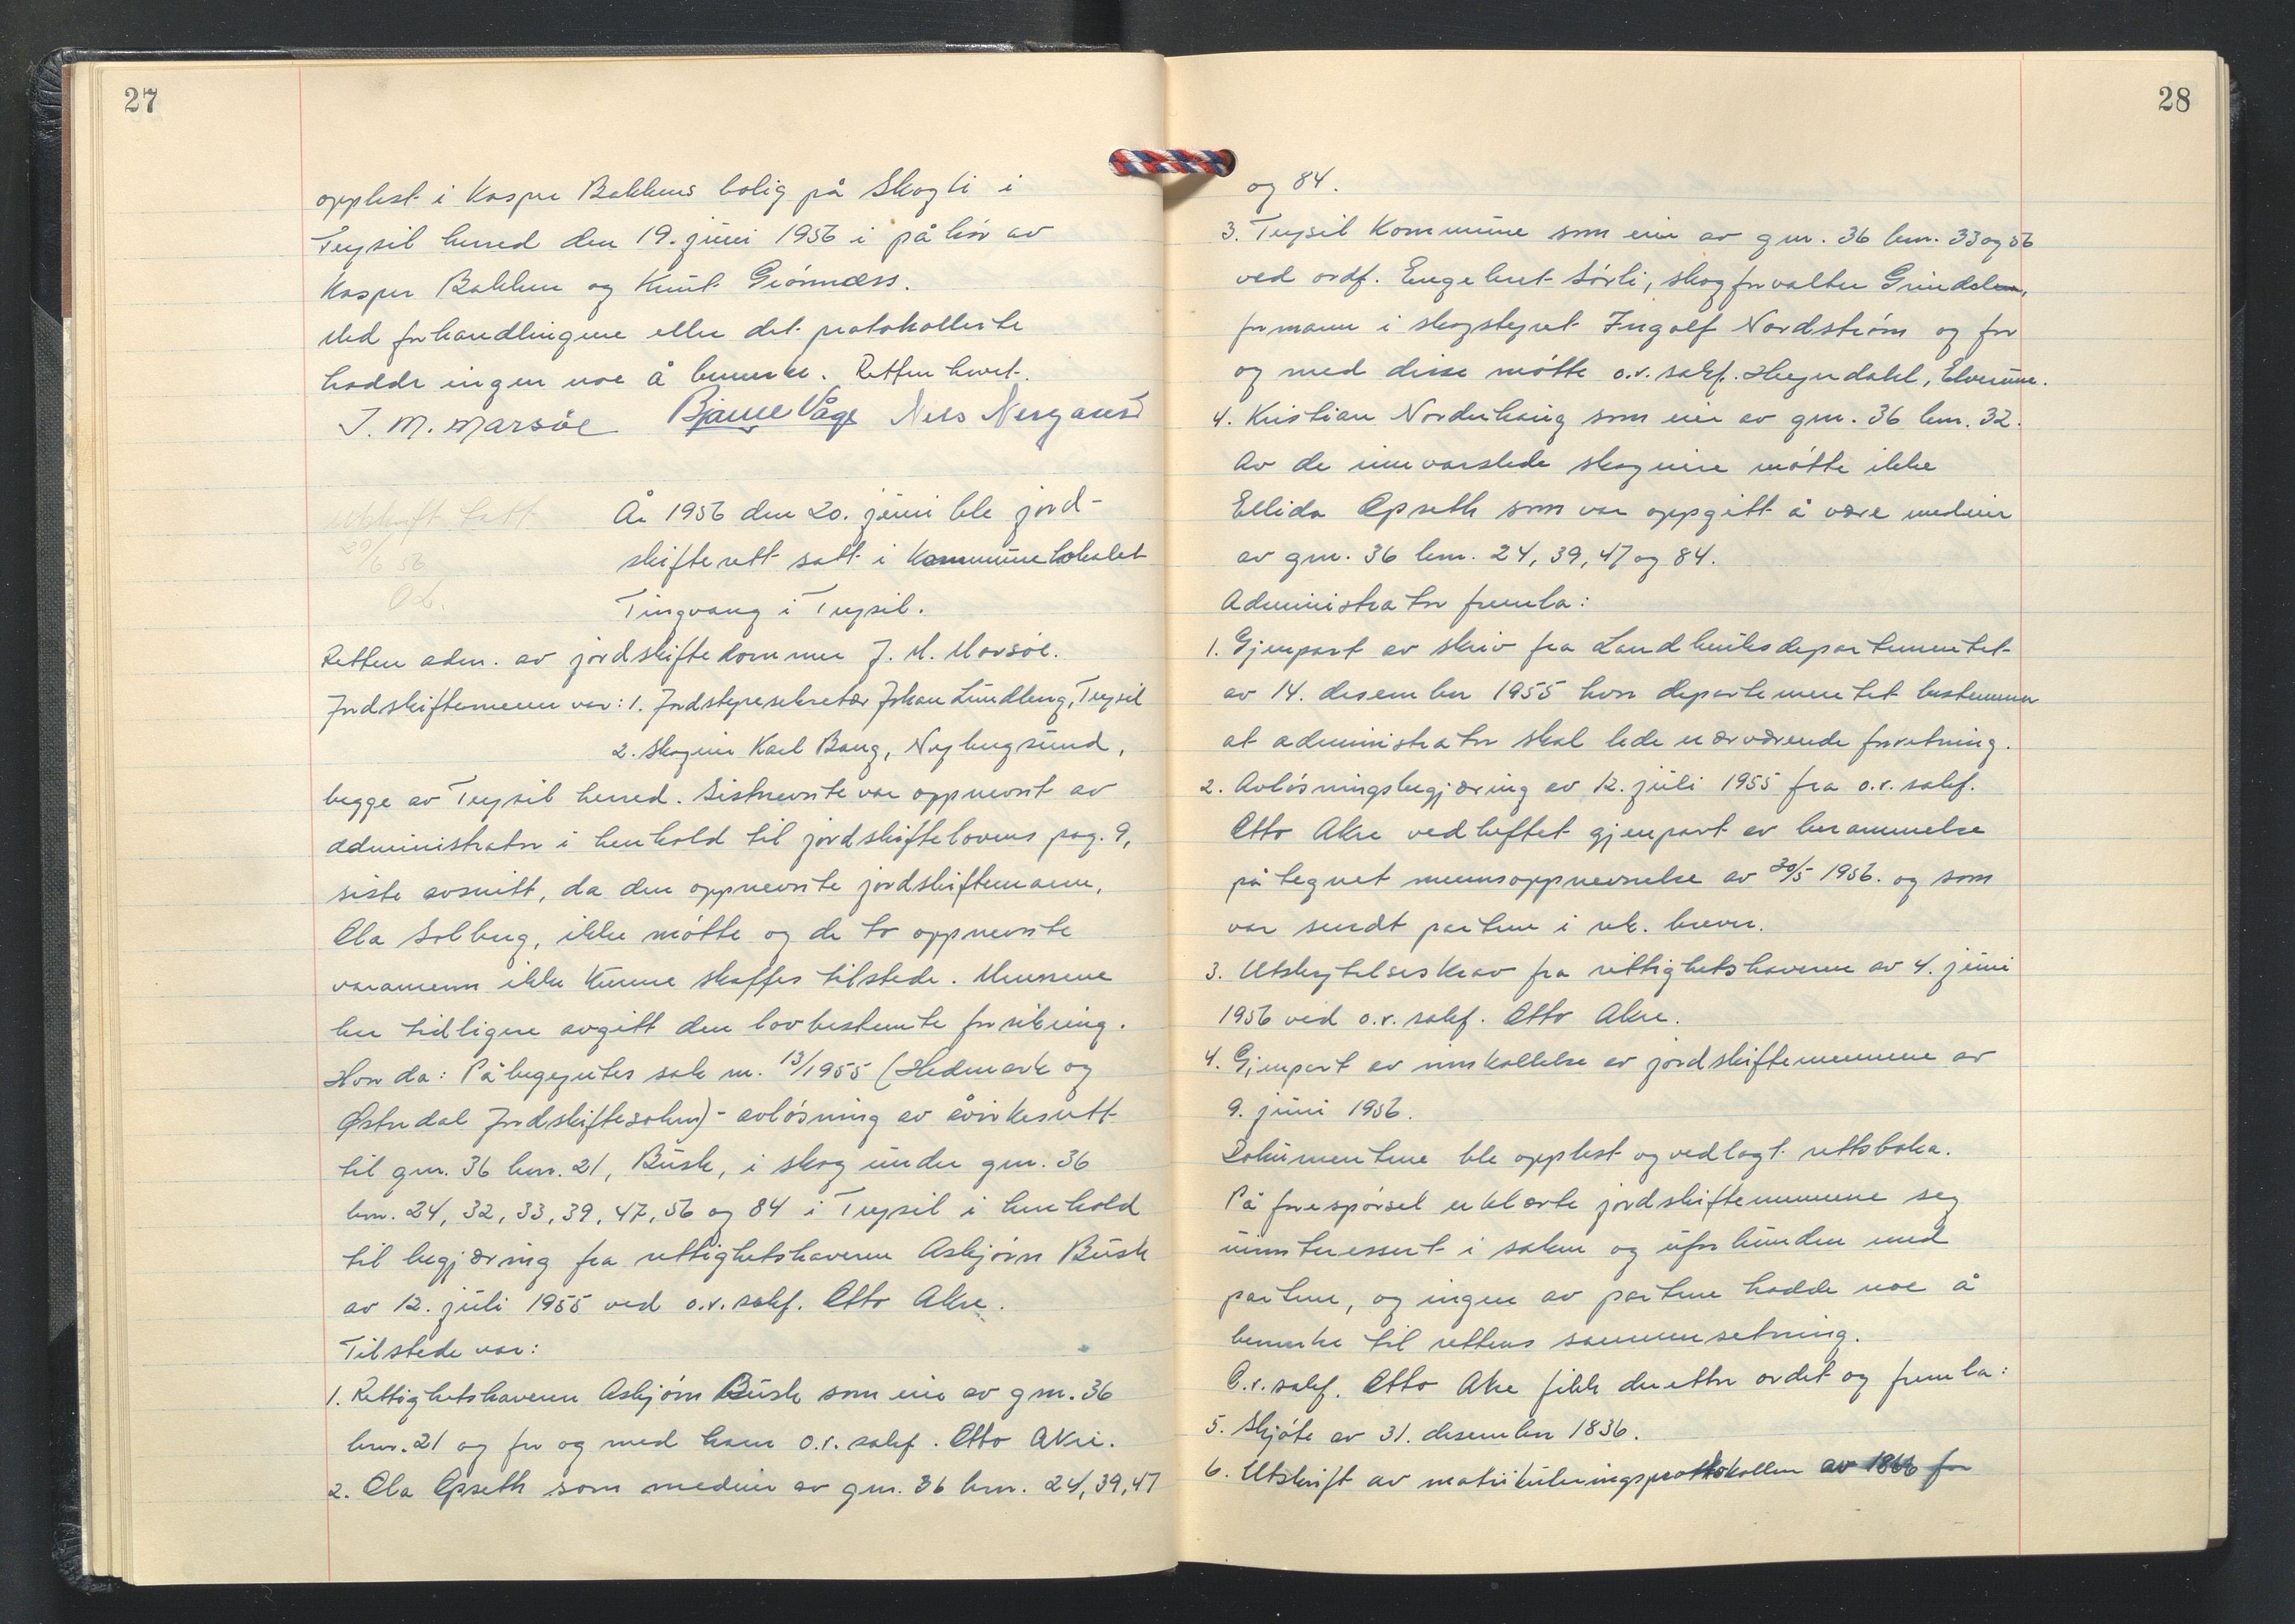 27
opplest i Kasper Bakkens bolig på Skogli i
Trysil herred den 19. juni 1956 i påhør av
Kasper Bakken og Knut Grønnæss.
Ved forhandlingene eller det protokollerte
hadde ingen noe å bemerke. Retten hevet.
J. M. Marsøe Bjarne Våge Nils Nergaard
Utskrift tatt
20/6 56
OL.
År 1956 den 20. juni ble jord-
skifterett satt i Kommunelokalet
Tingvang i Trysil.
Retten adm. av jordskiftedommer J. M. Marsøe.
Jordskiftemenn var: 1. Jordstyresekretær Johan Lundberg, Trysil
2. Skogeier Karl Bang, Nybergsund,
begge av Trysil herred. Sistnevnte var oppnevnt av
administrator i henhold til jordskiftelovens pag. 9,
siste avsnitt, da den oppnevnte jordskiftemann,
Ola Solberg, ikke møtte og de to oppnevnte
varamenn ikke kunne skaffes tilstede. Mennene
har tidligere avgitt den lovbestemte forsikring.
Hvor da: Påbegyntes sak nr. 13/1955 (Hedmark og
Østerdal Jordskiftesokn) - avløsning av åvirkesrett
til gnr. 36 bnr. 21, Busk, i skog under gnr. 36
bnr. 24, 32, 33, 39, 47, 56 og 84 i Trysil i henhold
til begjæring fra rettighetshaveren Asbjørn Busk
av 12. juli 1955 ved o.r.sakf. Otto Akre.
Tilstede var:
1. Rettighetshaveren Asbjørn Busk som eier av gnr. 36
bnr. 21 og for og med ham o.r. sakf. Otto Akre.
2. Ola Opseth som medeier av gnr. 36 bnr. 24, 39, 47
28
og 84.
3. Trysil Kommune som eier av gnr. 36 bnr. 33 og 56
ved ordf. Engebret Sørli, skogforvalter Grindal,
formann i skogstyret Ingolf Nordstrøm og for
og med disse møtte o.r. sakf. Heyerdahl, Elverum.
4. Kristian Norderhaug som eier av gnr. 36 bnr. 32.
Av de innvarslede skogeiere møtte ikke
Ellida Opseth som var oppgitt å være medeier
av gnr. 36 bnr. 24, 39, 47 og 84.
Administrator fremla:
1. Gjenpart av skriv fra Landbruksdepartementet
av 14. desember 1955 hvor departementet bestemmer
at administrator skal lede nærværende forretning.
2. Avløsningsbegjæring av 12. juli 1955 fra o.r. sakf.
Otto Akre vedheftet gjenpart av berammelse
påtegnet mennsoppnevnelse av 30/5 1956. og som
var sendt partene i rek. brever.
3. Utskytelseskrav fra rettighetshaveren av 4. juni
1956 ved o.r. sakf. Otto Akre.
4. Gjenpart av innkallelse av jordskiftemennene av
9. juni 1956.
Dokumentene ble opplest og vedlagt rettsboka.
På forespørsel erklærte jordskiftemennene seg
uinteressert i saken og uforbunden med
partene, og ingen av partene hadde noe å
bemerke til rettens sammensetning.
O.r. sakf. Otto Akre fikk deretter ordet og fremla:
5. Skjøte av 31. desember 1836.
6. Utskrift av matrikuleringsprotokollen av 1866 for